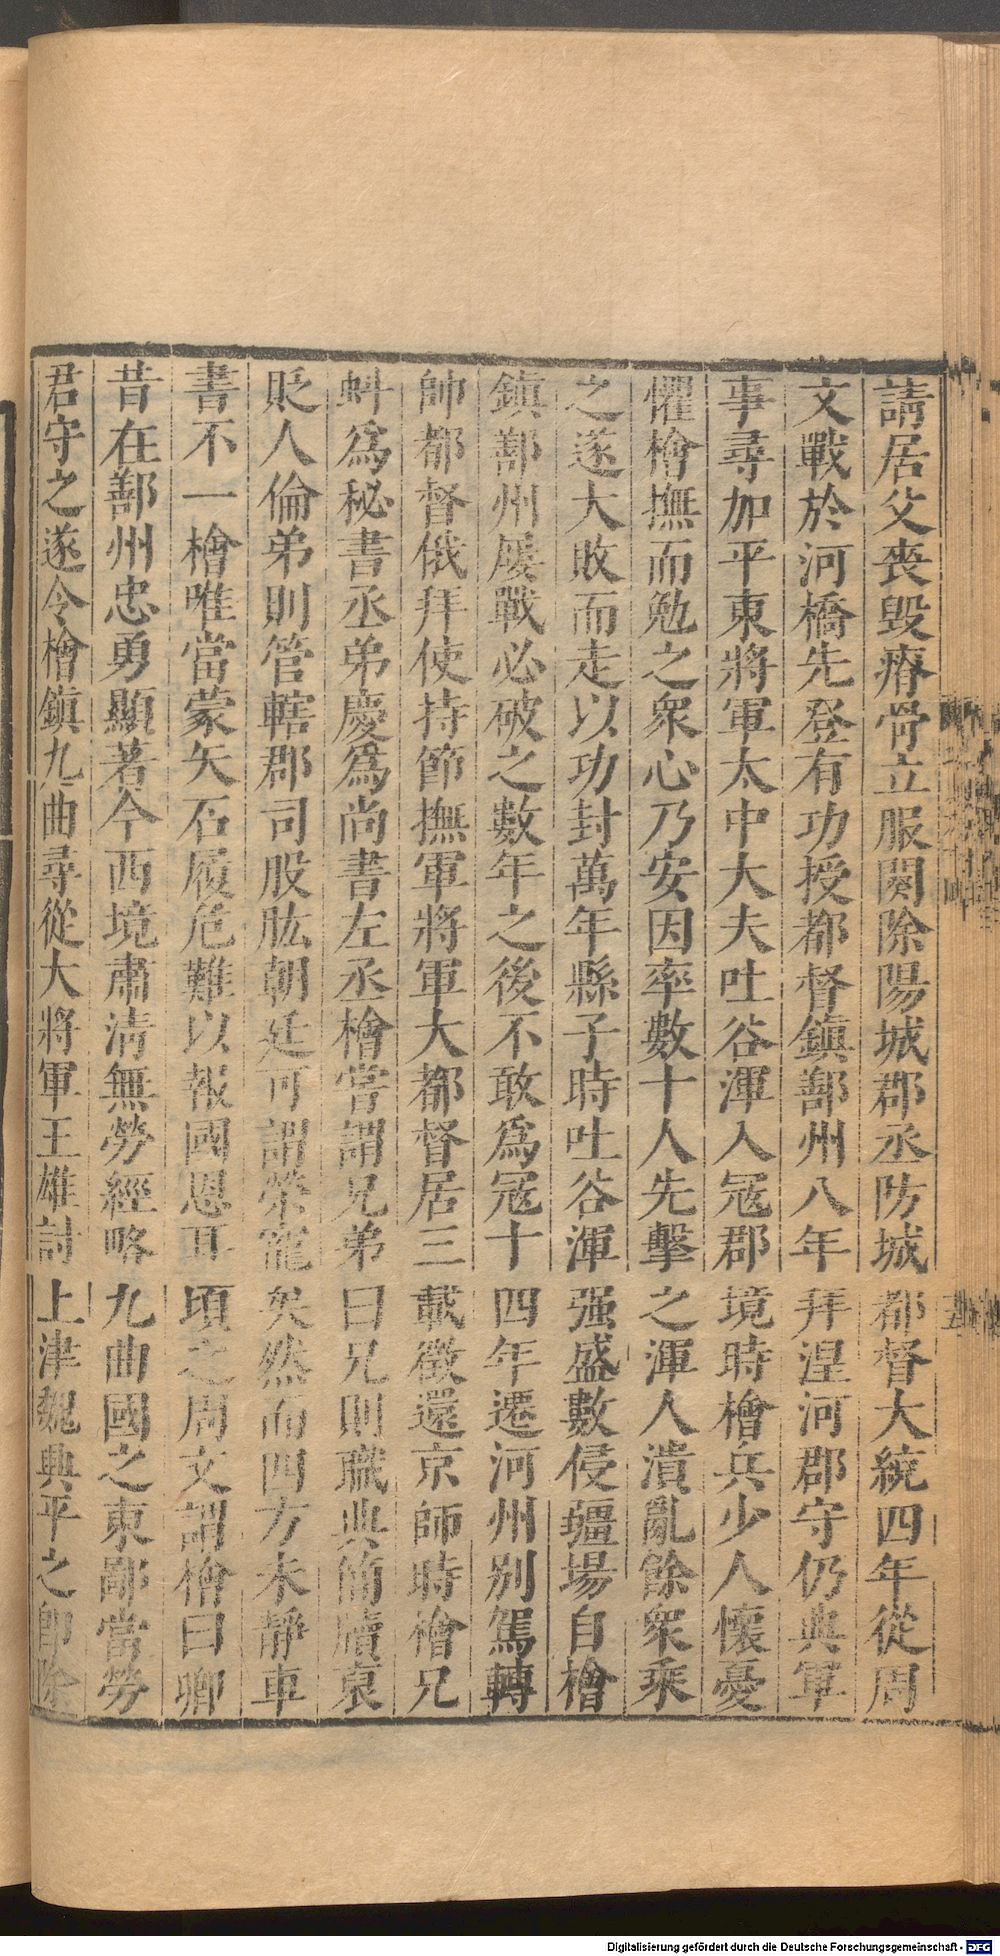 請居父喪毀瘠骨立服闋除陽城郡丞防城都督大統四年從周
文戰於河橋先登有功授都督鎮鄯州八年拜湟河郡守仍典軍
事尋加平東將軍太中大夫吐谷渾入冦郡境時檜兵少人懷憂
懼檜撫而勉之衆心乃安因率數十人先擊之渾人潰亂餘衆乘
之遂大敗而走以功封萬年縣子時吐谷渾强盛數侵疆場自檜
鎮鄯州屢戰必破之數年之後不敢爲冦十四年遷河州别駕轉
帥都督俄拜使持節撫軍將軍大都督居三載徵還京師時檜兄
蚪爲秘書丞弟慶爲尚書左丞檜嘗謂兄弟曰兄則職典簡牘襃
貶人倫弟則管轄郡司股肱朝廷可謂榮寵矣然而四方未靜車
書不一檜唯當蒙矢石履危難以報國恩耳頃之周文謂檜曰卿
昔在鄯州忠勇顯著今西境肅清無勞經略九曲國之東鄙當勞
君守之遂令檜鎮九曲尋從大將軍王雄討上津魏興平之卽除
Digitalisierung gefördert durch die Deutsche Forschungsgemeinschaft - DFG